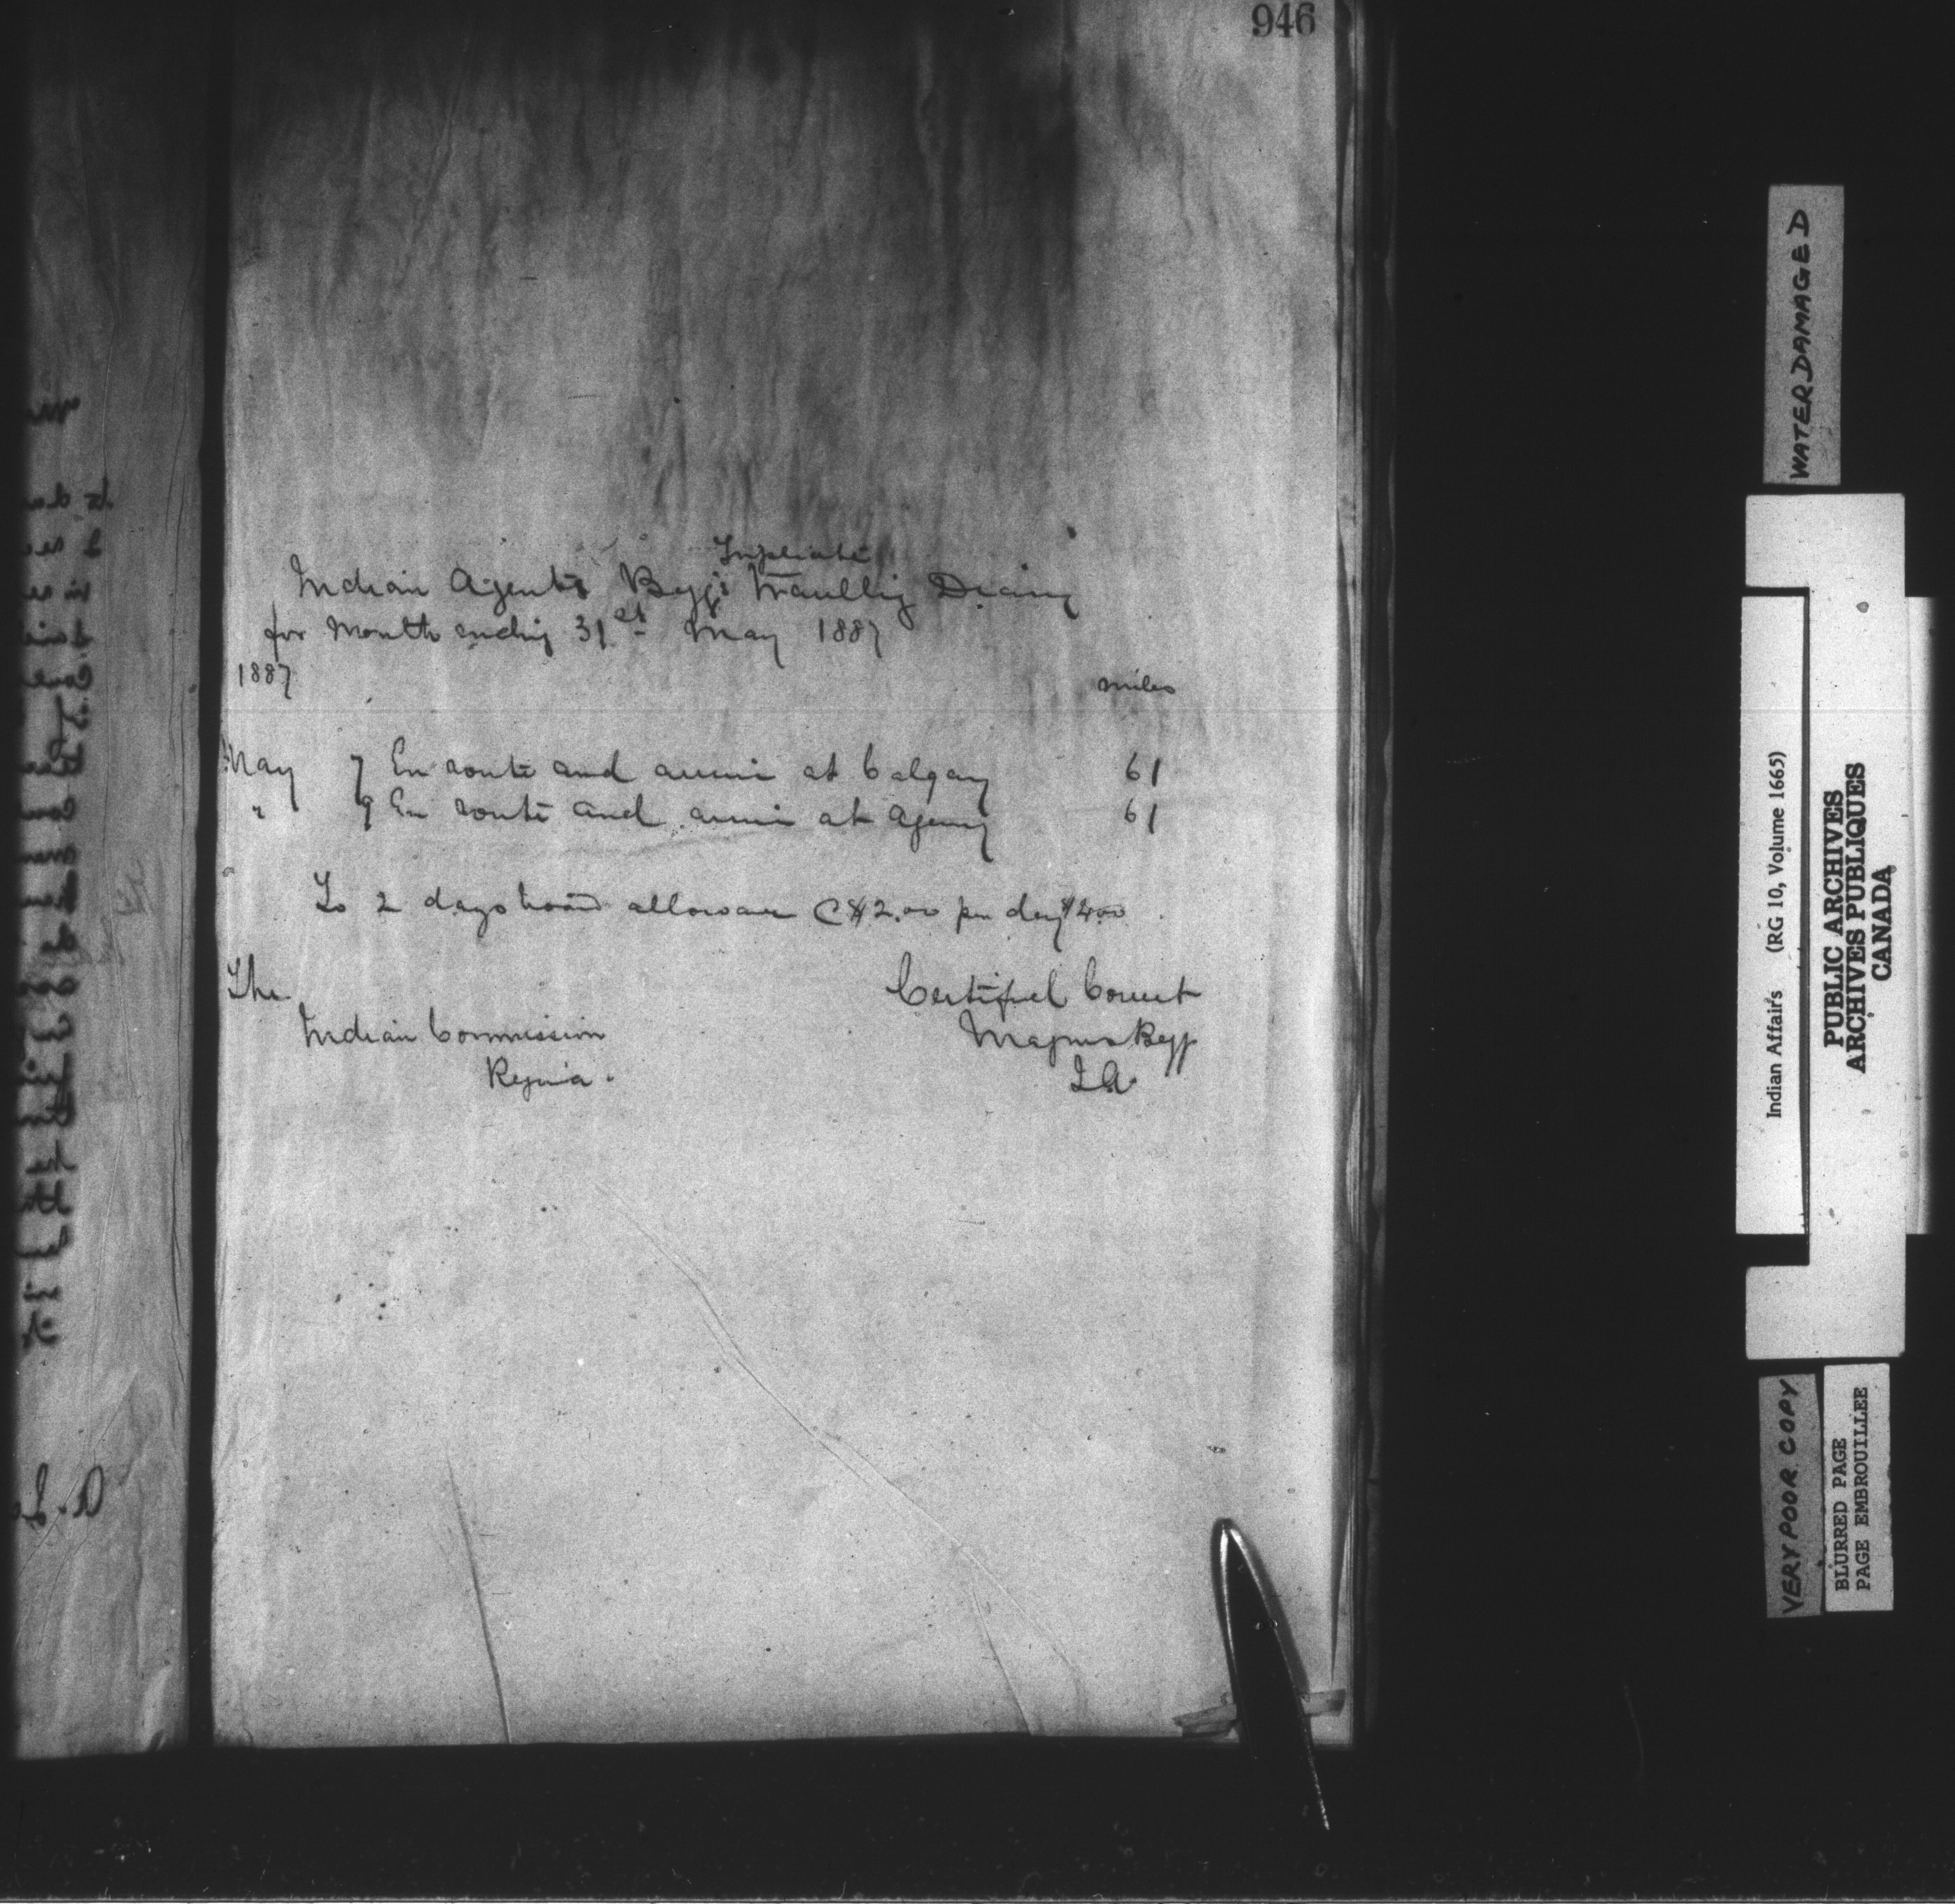 946
Triplicate
Indian Agents Begg's Travelling Diary
for Month ending 31st May 1887
1887 miles
May 7 En route and arrive at Calgary 61
" 9 En route and arrive at Agency 61
To 2 days board allowance @ $2.00 per day $4.00
The
Indian Commission
Regina.
Certified Correct
Magnus Begg
I.A.
WATERDAMAGED
Indian Affairs (RG 10, Volume 1665)
PUBLIC ARCHIVES
ARCHIVES PUBLIQUES
CANADA
VERY POOR COPY
BLURRED PAGE
PAGE EMBROUILLEE